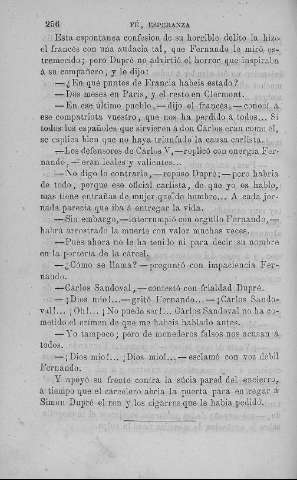 256 FÉ, ESPERANZA
Esta espontánea confesion de su horrible delito la hizo
el francés con una audacia tal, que Fernando le miró es-
tremecido; pero Dupré no advirtió el horror que inspiraba
á su compañero, y le dijo:
—¿En qué puntos de Francia habeis estado?
—Dos meses en París, y el resto en Clermont.
—En ese último pueblo,—dijo el francés,—conocí á
ese compatriota vuestro, que nos ha perdido á todos... Si
todos los españoles que sirvieron á don Carlos eran como él,
se esplica bien que no haya triunfado la causa carlista.
—Los defensores de Cárlos V,—replicó con energía Fer-
nando,—eran leales y valientes...
—No digo lo contrario,—repuso Dupré;—pero habria
de todo, porque ese oficial carlista, de que yo os hablo,
mas tiene entrañas de mujer que de hombre... A cada jor-
nada parecia que iba á entregar la vida.
—Sin embargo,—interrumpió con orgullo Fernando,—
habrá arrostrado la muerte con valor muchas veces.
—Pues ahora no le ha tenido ni para decir su nombre
en la portería de la cárcel.
—¿Cómo se llama?—preguntó con impaciencia Fer-
nando.
—Cárlos Sandoval,—contestó con frialdad Dupré.
—¡Dios mio!...—gritó Fernando...—¡Cárlos Sando-
val!... ¡Oh!... ¡No puede ser!... Cárlos Sandoval no ha co-
metido el crímen de que me habeis hablado antes.
—Yo tampoco; pero de monederos falsos nos acusan á
todos.
—¡Dios mio!... ¡Dios mio!...—esclamó con voz débil
Fernando.
Y apoyó su frente contra la súcia pared del encierro,
á tiempo que el carcelero abria la puerta para entregar á
Simon Dupré el ron y los cigarros que le habia pedido.